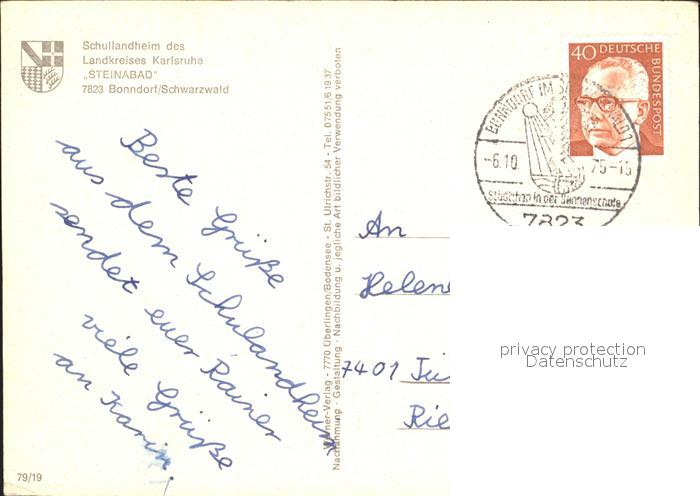 Schullandheim des
Landkreises Karlsruhe
„STEINABAD"
7823 Bonndorf/Schwarzwald
Beste Grüße
aus dem Schulandheim
sendet euer Rainer
viele Grüße
an Karin.
79/19
Werner-Verlag - 7770 Überlingen/Bodensee - St. Ulrichstr. 54 - Tel. 07551/61937
Nachahmung - Gestaltung - Nachbildung u. jegliche Art bildlicher Verwendung verboten
40 DEUTSCHE
BUNDESPOST
BONNDORF IM
-6.10. 75-15
Städtchen in der Sonnenschale
7823
An
Helen
7401
Rie
privacy protection
Datenschutz